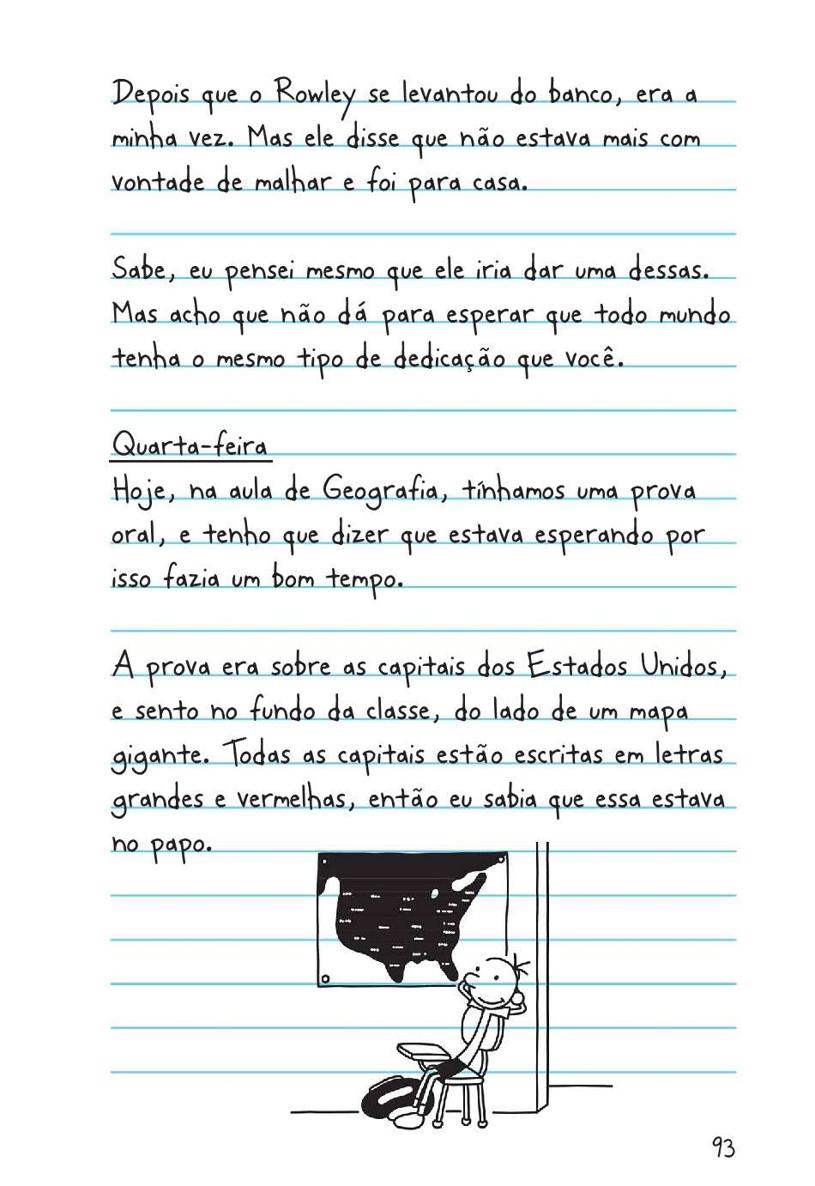 Depois que o Rowley se levantou do banco, era a
minha vez. Mas ele disse que não estava mais com
vontade de malhar e foi para casa.
Sabe, eu pensei mesmo que ele iria dar uma dessas.
Mas acho que não dá para esperar que todo mundo
tenha o mesmo tipo de dedicação que você.
Quarta-feira
Hoje, na aula de Geografia, tínhamos uma prova
oral, e tenho que dizer que estava esperando por
isso fazia um bom tempo.
A prova era sobre as capitais dos Estados Unidos,
e sento no fundo da classe, do lado de um mapa
gigante. Todas as capitais estão escritas em letras
grandes e vermelhas, então eu sabia que essa estava
no papo.
93